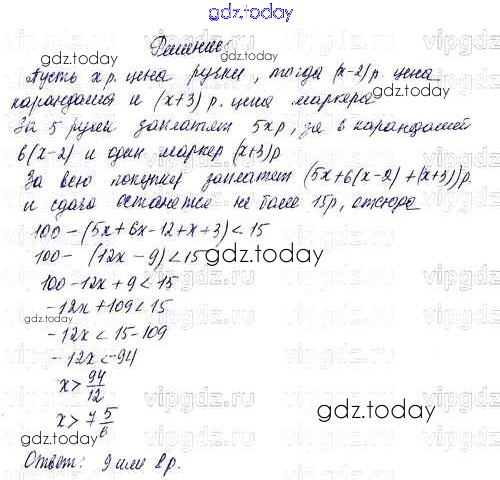 gdz.today
Решение:
Пусть x р. цена ручки, тогда (x-2) р цена
карандаша и (x+3) р. цена маркера
За 5 ручек заплатят 5x р, за 6 карандашей
6(x-2) и один маркер (x+3)р
За всю покупку заплатят (5x+6(x-2)+(x+3))р.
и сдача останется не более 15р, отсюда
100-(5x+6x-12+x+3)<15
100-(12x-9)<15
100-12x+9<15
-12x+109<15
-12x<15-109
-12x<-94
x>94/12
x>7 5/6
Ответ: 9 или 8р.
gdz.today
gdz.today
gdz.today
gdz.today
gdz.today
gdz.today
gdz.today
gdz.today
vipgdz.ru
vipgdz.ru
vipgdz.ru